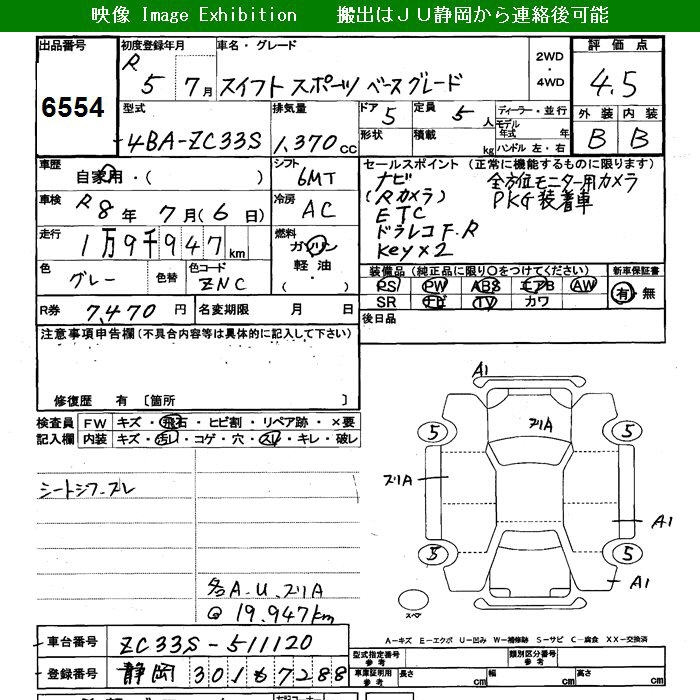 映像 Image Exhibition 搬出はJU静岡から連絡後可能
出品番号
6554
初度登録年月
R 5 7月
車名・グレード
スイフト スポーツ ベースグレード
2WD
・
4WD
評価点
4.5
型式
4BA-ZC33S
排気量
1,370 CC
ドア 5
定員 5 人
形状
積載 kg
ディーラー・並行
モデル年式 年
ハンドル 左・右
外装 内装
B B
車歴
自家用・( )
シフト
6MT
車検
R 8年 7月(6日)
冷房
AC
走行
1万9千947km
燃料
ガソリン
軽油・
( )
色
グレー
色替
色コード
ZNC
R券 7,470円
名変期限 月 日
セールスポイント (正常に機能するものに限ります)
ナビ 全方位モニター用カメラ
(Rカメラ) PKG装着車
ETC
ドラレコ F.R
Key×2
装備品 (純正品に限り○をつけてください)
新車保証書
PS PW ABS エアB AW
SR ナビ TV カワ
有・無
後日品
注意事項申告欄(不具合内容等は具体的に記入して下さい)
修復歴 有 〔箇所 〕
検査員
記入欄
FW キズ・飛石・ヒビ割・リペア跡・×要
内装 キズ・汚レ・コゲ・穴・スレ・キレ・破レ
シートシワ・スレ
各A.U.スリA
@ 19.947km
A1
スリA
5 5
スリA
A1
5 5
A1
スペ
A-キズ E-エクボ U-凹み W-補修跡 S-サビ C-腐食 XX-交換済
車台番号 ZC33S-511120
登録番号 静岡 301 も 7288
型式指定番号
参考
類別区分番号
参考
車庫証明用
参考
長さ cm 幅 cm 高さ cm